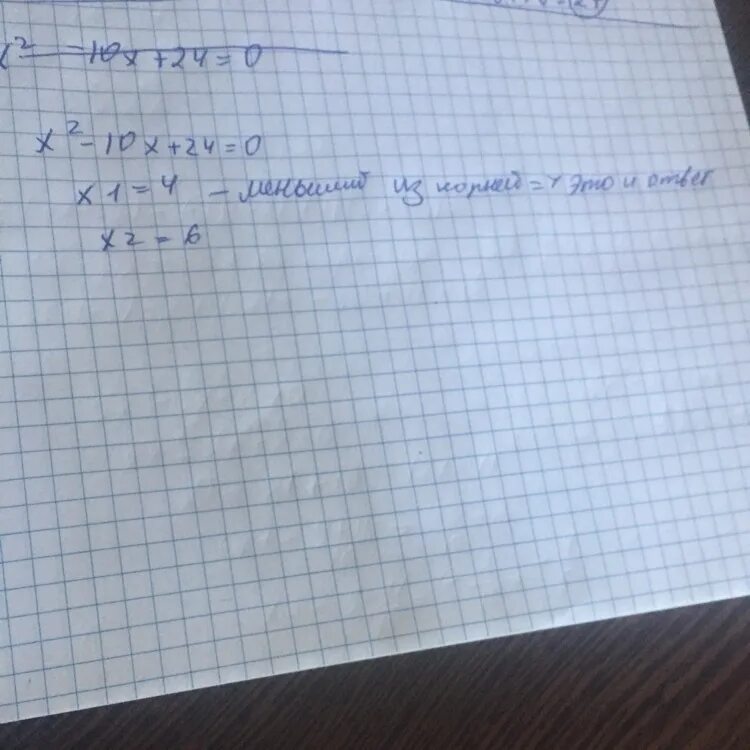 x² - 10x + 24 = 0
x² - 10x + 24 = 0
x1 = 4 - меньший из корней => это и ответ
x2 = 6